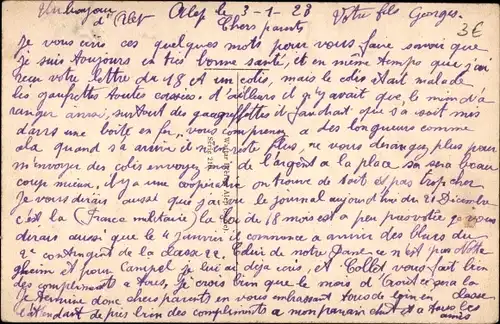 Un bonjour d'Alep
Alep le 3-1-23
Votre fils Georges
3€
Chers parents
Je vous écris ces quelques mots pour vous faire savoir que
je suis toujours en très bonne santé, et en même temps que j'ai
reçu votre lettre du 18 et un colis, mais le colis était malade
les gaufrettes toutes cassées. d'ailleurs il n'y avait que le
ranger aussi, surtout des il faudrait que ça soit mis
dans une boîte en fer, vous comprenez a des longueurs comme
cela quand sa arrive il ne reste plus, ne vous dérangez plus pour
m'envoyer des colis envoyez moi de l'argent a la place sa sera beau
coup mieux, il y a une coopérative on trouve de tout et pas trop cher
Je vous dirais aussi que j'ai vu le journal aujourd'hui du 21 Décembre
c'est la (France militaire) la loi de 18 mois est a peu près votée je vous
dirais aussi que le 4 janvier il commence a arriver des bleus du
2e contingent de la classe 22.
et pour je lui ai déjà écris, et Collet vous fait bien
des compliments a tous, je crois bien que le mois d' sera la
Je termine donc chers parents en vous embrassant tous de loin en classe
attendant de près bien des compliments a mon parrain et a tous les
amis